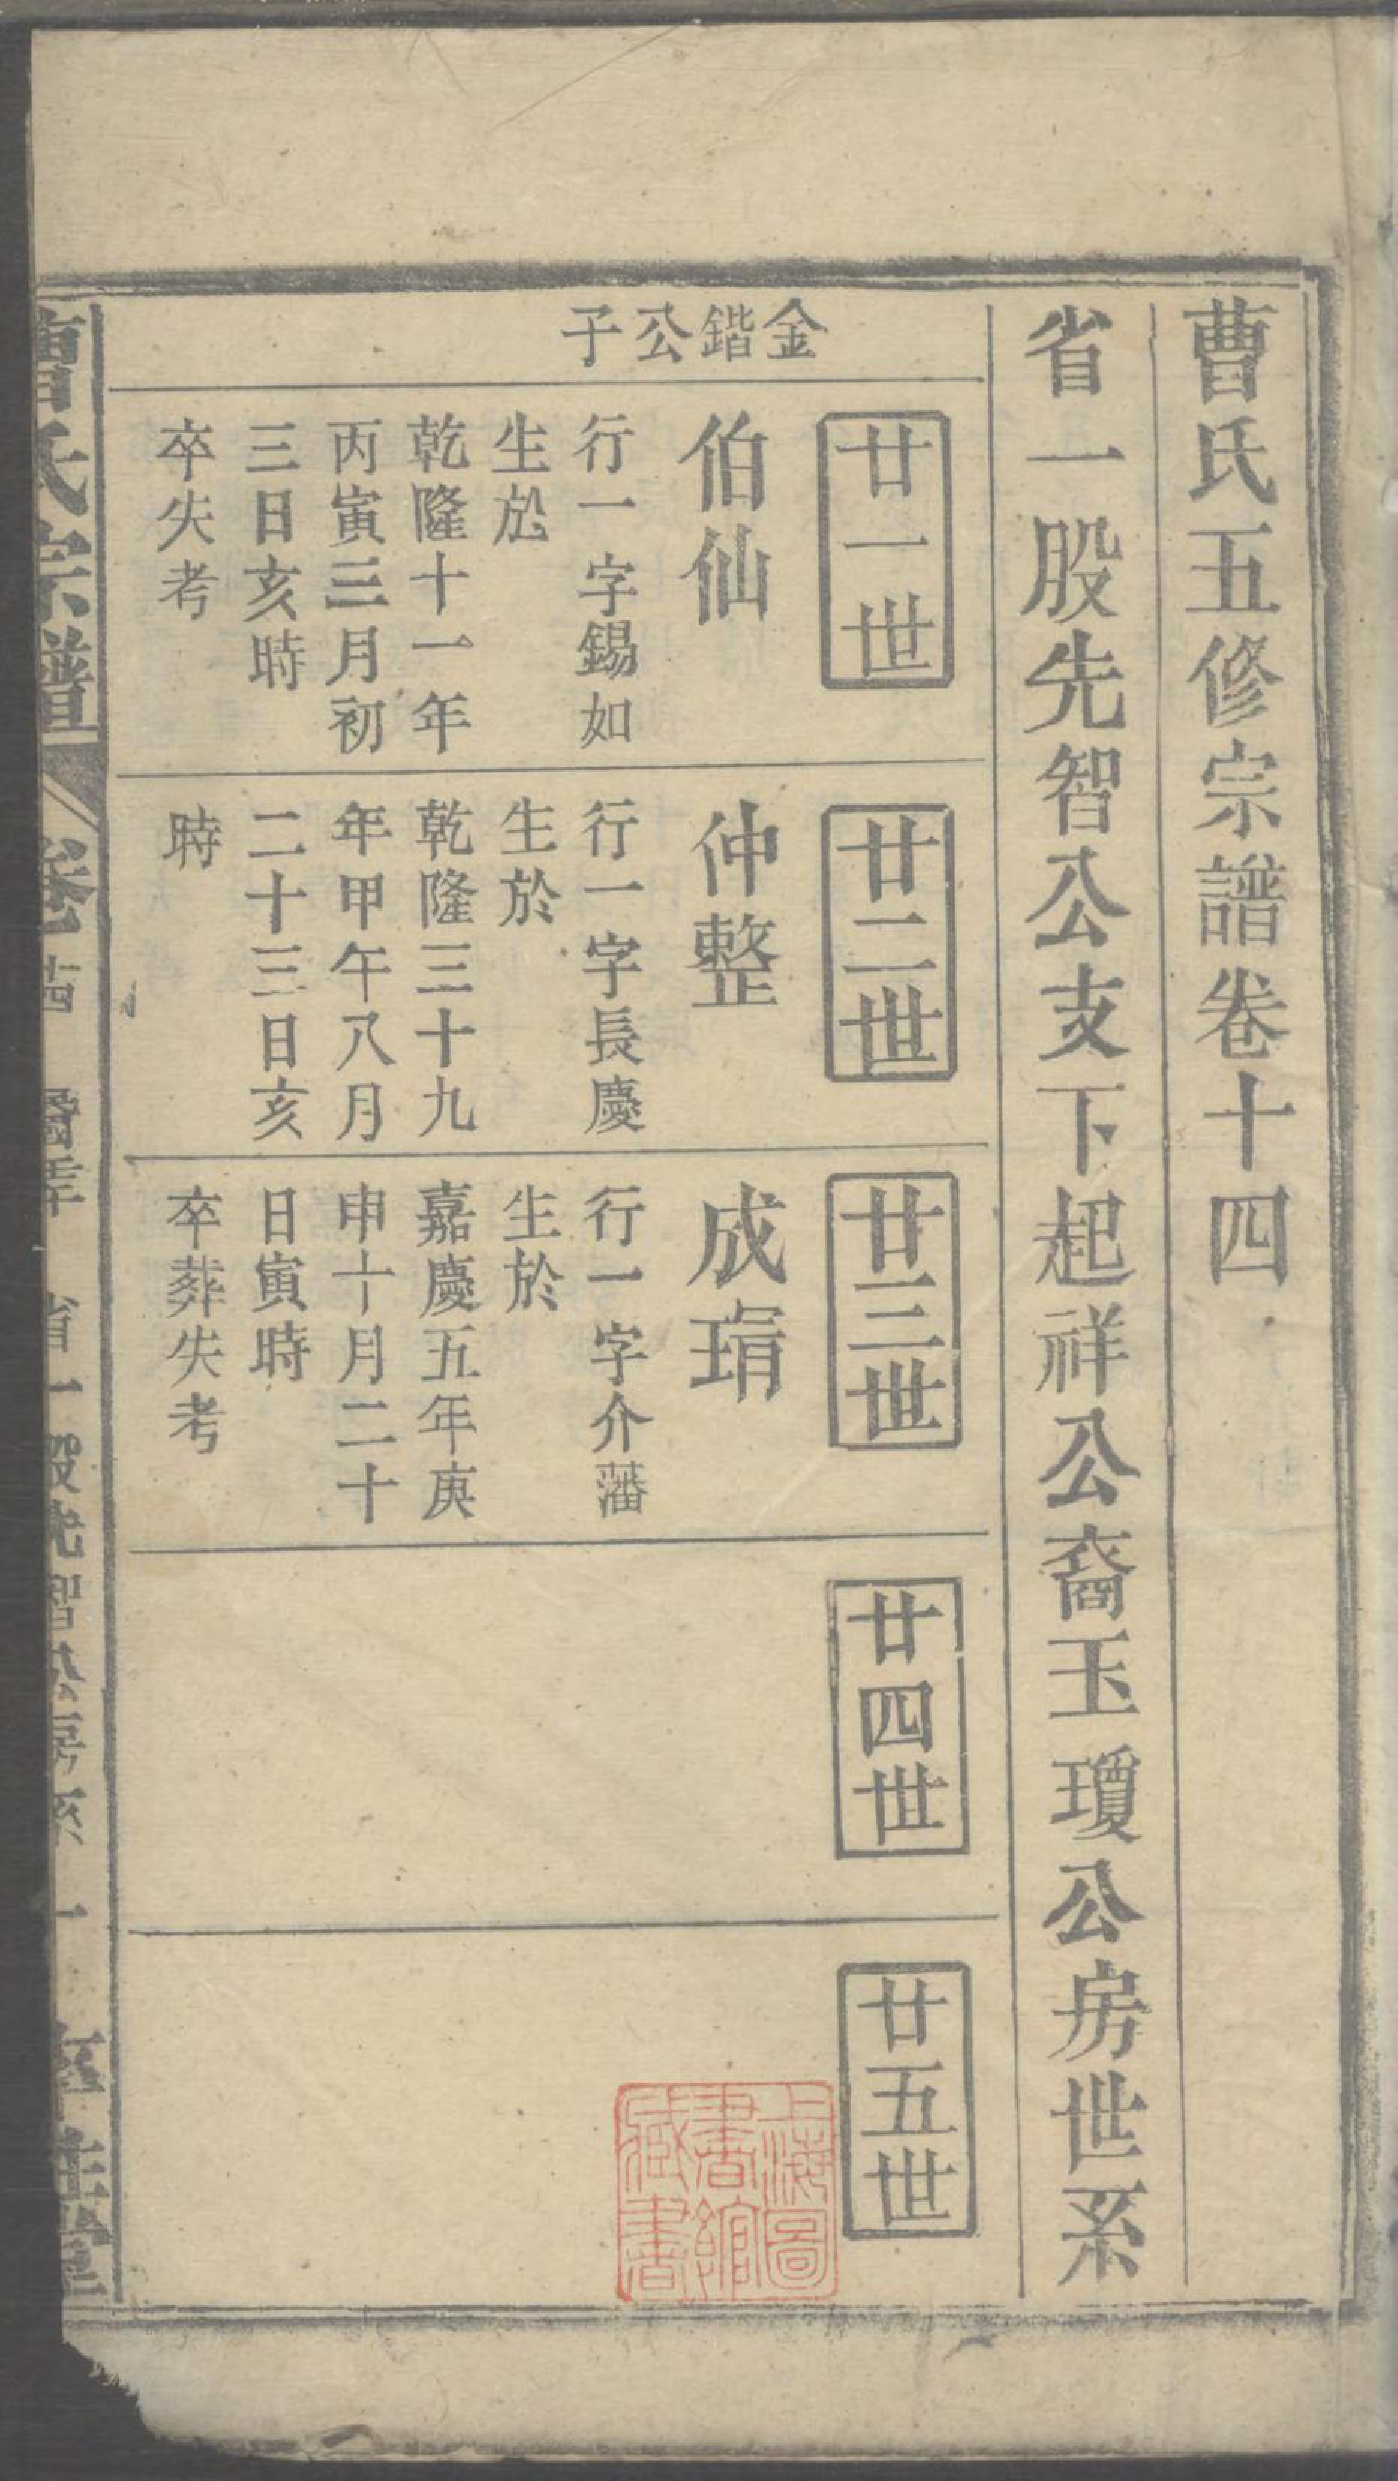 曹氏五修宗譜卷十四
省一股先智公支下起祥公裔玉瓊公房世系
金鍇公子
廿一世
伯仙
行一字錫如
生於
乾隆十一年
丙寅三月初
三日亥時
卒失考
廿二世
仲整
行一字長慶
生於
乾隆三十九
年甲午八月
二十三日亥
時
廿三世
成琄
行一字介藩
生於
嘉慶五年庚
申十月二十
日寅時
卒葬失考
廿四世
廿五世
上海圖
書館
藏書
曹氏宗譜
卷
省一股先智公房系
一